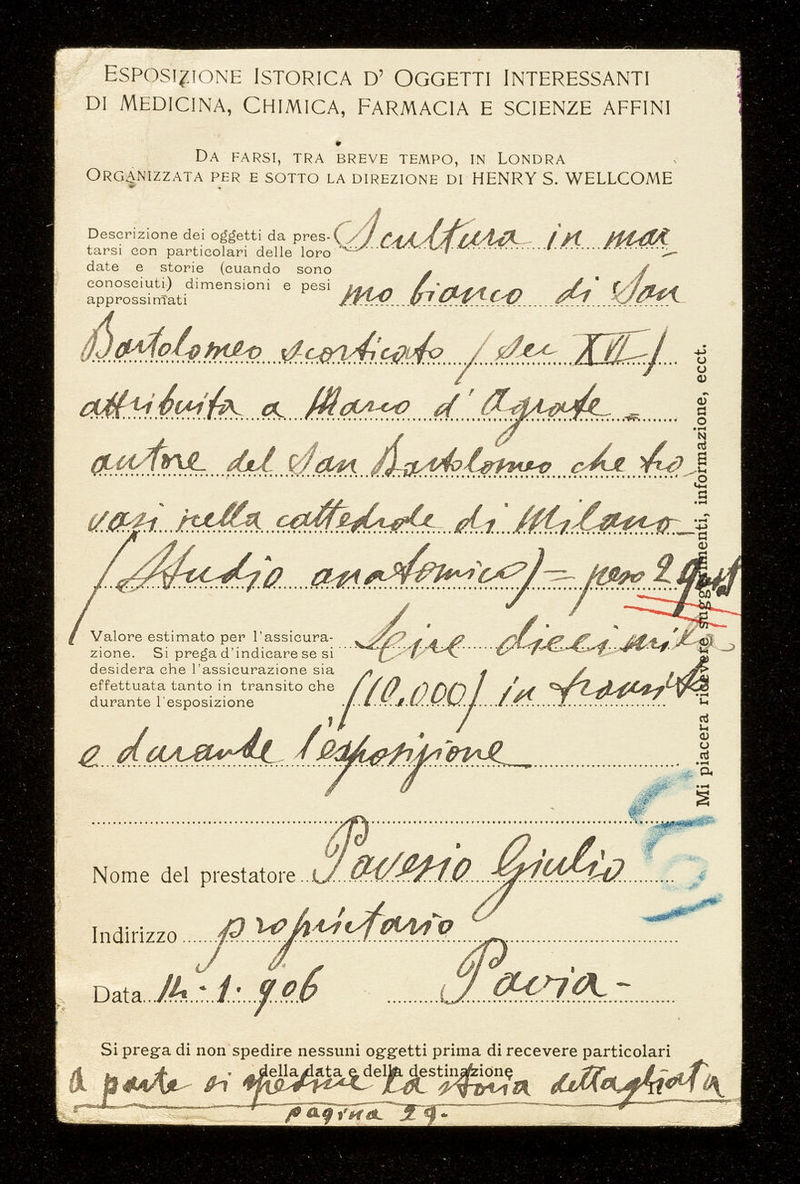 ESPOSIZIONE ISTORICA D' OGGETTI INTERESSANTI
DI MEDICINA, CHIMICA, FARMACIA E SCIENZE AFFINI
DA FARSI, TRA BREVE TEMPO, IN LONDRA
ORGANIZZATA PER E SOTTO LA DIREZIONE DI HENRY S. WELLCOME
Descrizione dei oggetti da pres-
tarsi con particolari delle loro
date e storie (cuando sono
conosciuti) dimensioni e pesi
approssimati
Scultura in mar
mo bianco di San
Bartolomeo scorticato / sec XVI /
attribuita a Marco d' Agrate =
autore del San Bartolomeo che tro
vasi nella cattedrale di Milano
(Studio anatomico) = peso 2
Valore estimato per l'assicura-
zione. Si prega d'indicare se si
desidera che l'assicurazione sia
effettuata tanto in transito che
durante l'esposizione
Lire diecimila
/10.000/ in transito
e durante l'esposizione
Nome del prestatore Pavesio Giulio
Indirizzo proprietario
Data 14 · 1 · 906 Pavia -
Si prega di non spedire nessuni oggetti prima di recevere particolari
della data e della destinazione
A parte si spedisce la storia dettagliata
pagina 29.
Mi piacera ricevere suggerimenti, informazione, ecct.